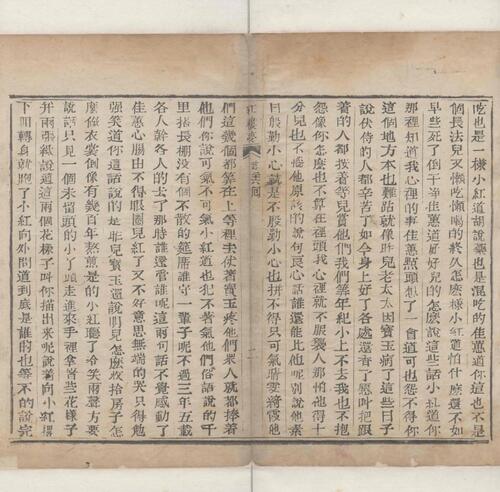 吃也是一樣小紅道胡說藥也是混吃的佳蕙道你這也不是
個長法兒又懶吃懶喝的終久怎麽樣小紅道怕什麽還不如
早些死了倒干净佳蕙道好好兒的怎麽說這些話小紅道你
那裡知道我心裡的事佳蕙點頭想了一會道可也怨不得你
這個地方本也難站就像昨兒老太太因寶玉病了這些日子
說伏侍的人都辛苦了如今身上好了各處還香了愿叫把跟
著的人都按着等兒賞他們我們算年紀小上不去我也不抱
怨像你怎麽也不算在裡頭我心裡就不服襲人那怕他得十
分兒也不惱他原該的說句良心話誰還能比他呢別說他素
日殷勤小心就是不殷勤小心也拼不得只可氣晴雯綺霞他
紅樓夢 第二六回
們這幾個都算在上等裡去仗着寶玉疼他們衆人就都捧着
他們你說可氣不可氣小紅道也犯不着氣他們俗語說的千
里搭長棚沒有個不散的筵席誰守一輩子呢不過三年五載
各人幹各人的去了那時誰還管誰呢這兩句話不覺感動了
佳蕙心腸由不得眼圈兒紅了又不好意思無端的哭只得勉
強笑道你這話說的是昨兒寶玉還說明兒怎麽收拾房子怎
麽做衣裳倒像有幾百年熬煎是的小紅聽了冷笑兩聲方要
說話只見一個未留頭的小丫頭走進來手裡拿着些花樣子
并兩張紙說道這兩個花樣子叫你描出來呢說着向小紅撂
下囘轉身就跑了小紅向外問道到底是誰的也等不的說完